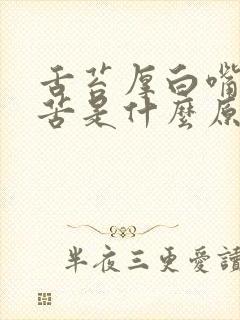 舌苔厚白嘴
苦是什麼原
半夜三更愛讀